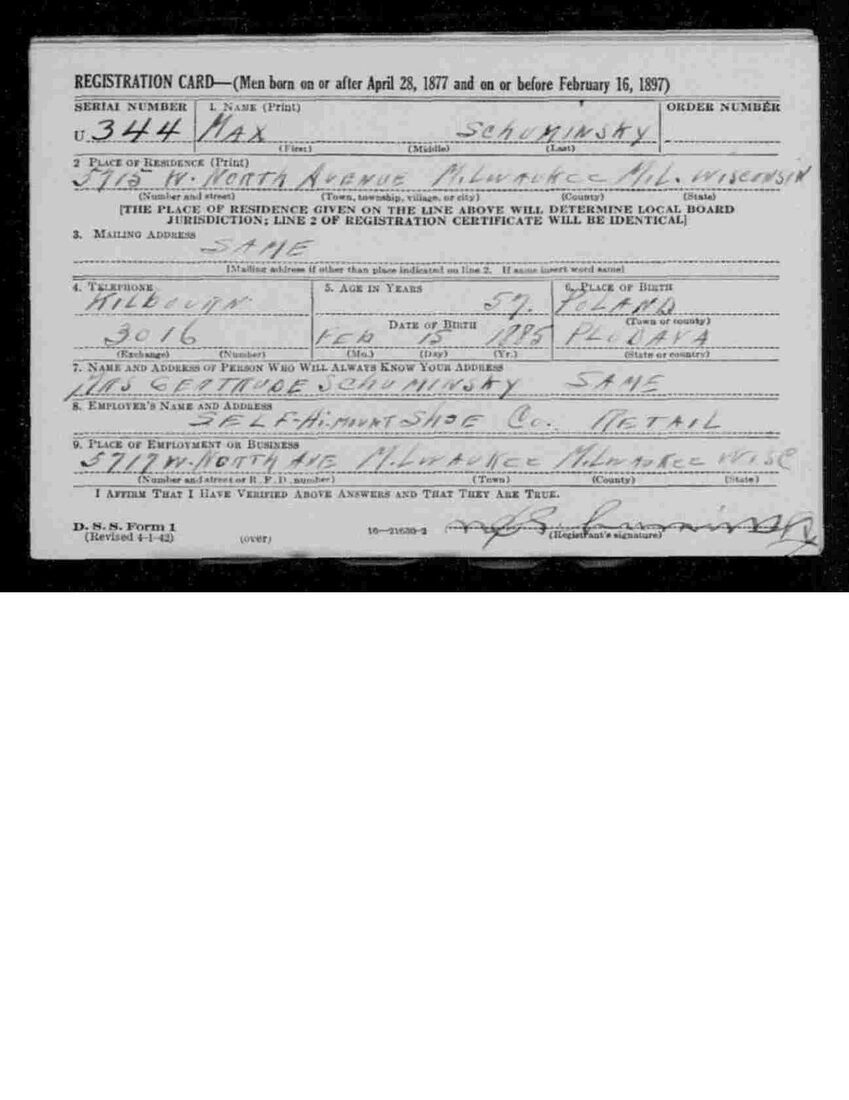 REGISTRATION CARD—(Men born on or after April 28, 1877 and on or before February 16, 1897)
SERIAL NUMBER 1. NAME (Print) ORDER NUMBER
U 344 MAX SCHUMINSKY
(First) (Middle) (Last)
2 PLACE OF RESIDENCE (Print)
5715 W. NORTH AVENUE MILWAUKEE MIL. WISCONSIN
(Number and street) (Town, township, village, or city) (County) (State)
[THE PLACE OF RESIDENCE GIVEN ON THE LINE ABOVE WILL DETERMINE LOCAL BOARD
JURISDICTION; LINE 2 OF REGISTRATION CERTIFICATE WILL BE IDENTICAL]
3. MAILING ADDRESS
SAME
[Mailing address if other than place indicated on line 2. If same insert word same]
4. TELEPHONE 5. AGE IN YEARS 6. PLACE OF BIRTH
KILBOURN 57. POLAND
DATE OF BIRTH (Town or county)
3016 FEB 15 1885 PLODAVA
(Exchange) (Number) (Mo.) (Day) (Yr.) (State or country)
7. NAME AND ADDRESS OF PERSON WHO WILL ALWAYS KNOW YOUR ADDRESS
MRS GERTRUDE SCHUMINSKY SAME
8. EMPLOYER'S NAME AND ADDRESS
SELF-HI-MOUNT SHOE CO. RETAIL
9. PLACE OF EMPLOYMENT OR BUSINESS
5717 W. NORTH AVE MILWAUKEE MILWAUKEE WISC
(Number and street or R. F. D. number) (Town) (County) (State)
I AFFIRM THAT I HAVE VERIFIED ABOVE ANSWERS AND THAT THEY ARE TRUE.
D. S. S. Form 1
(Revised 4-1-42) (over) 16—21630-2 (Registrant's signature)